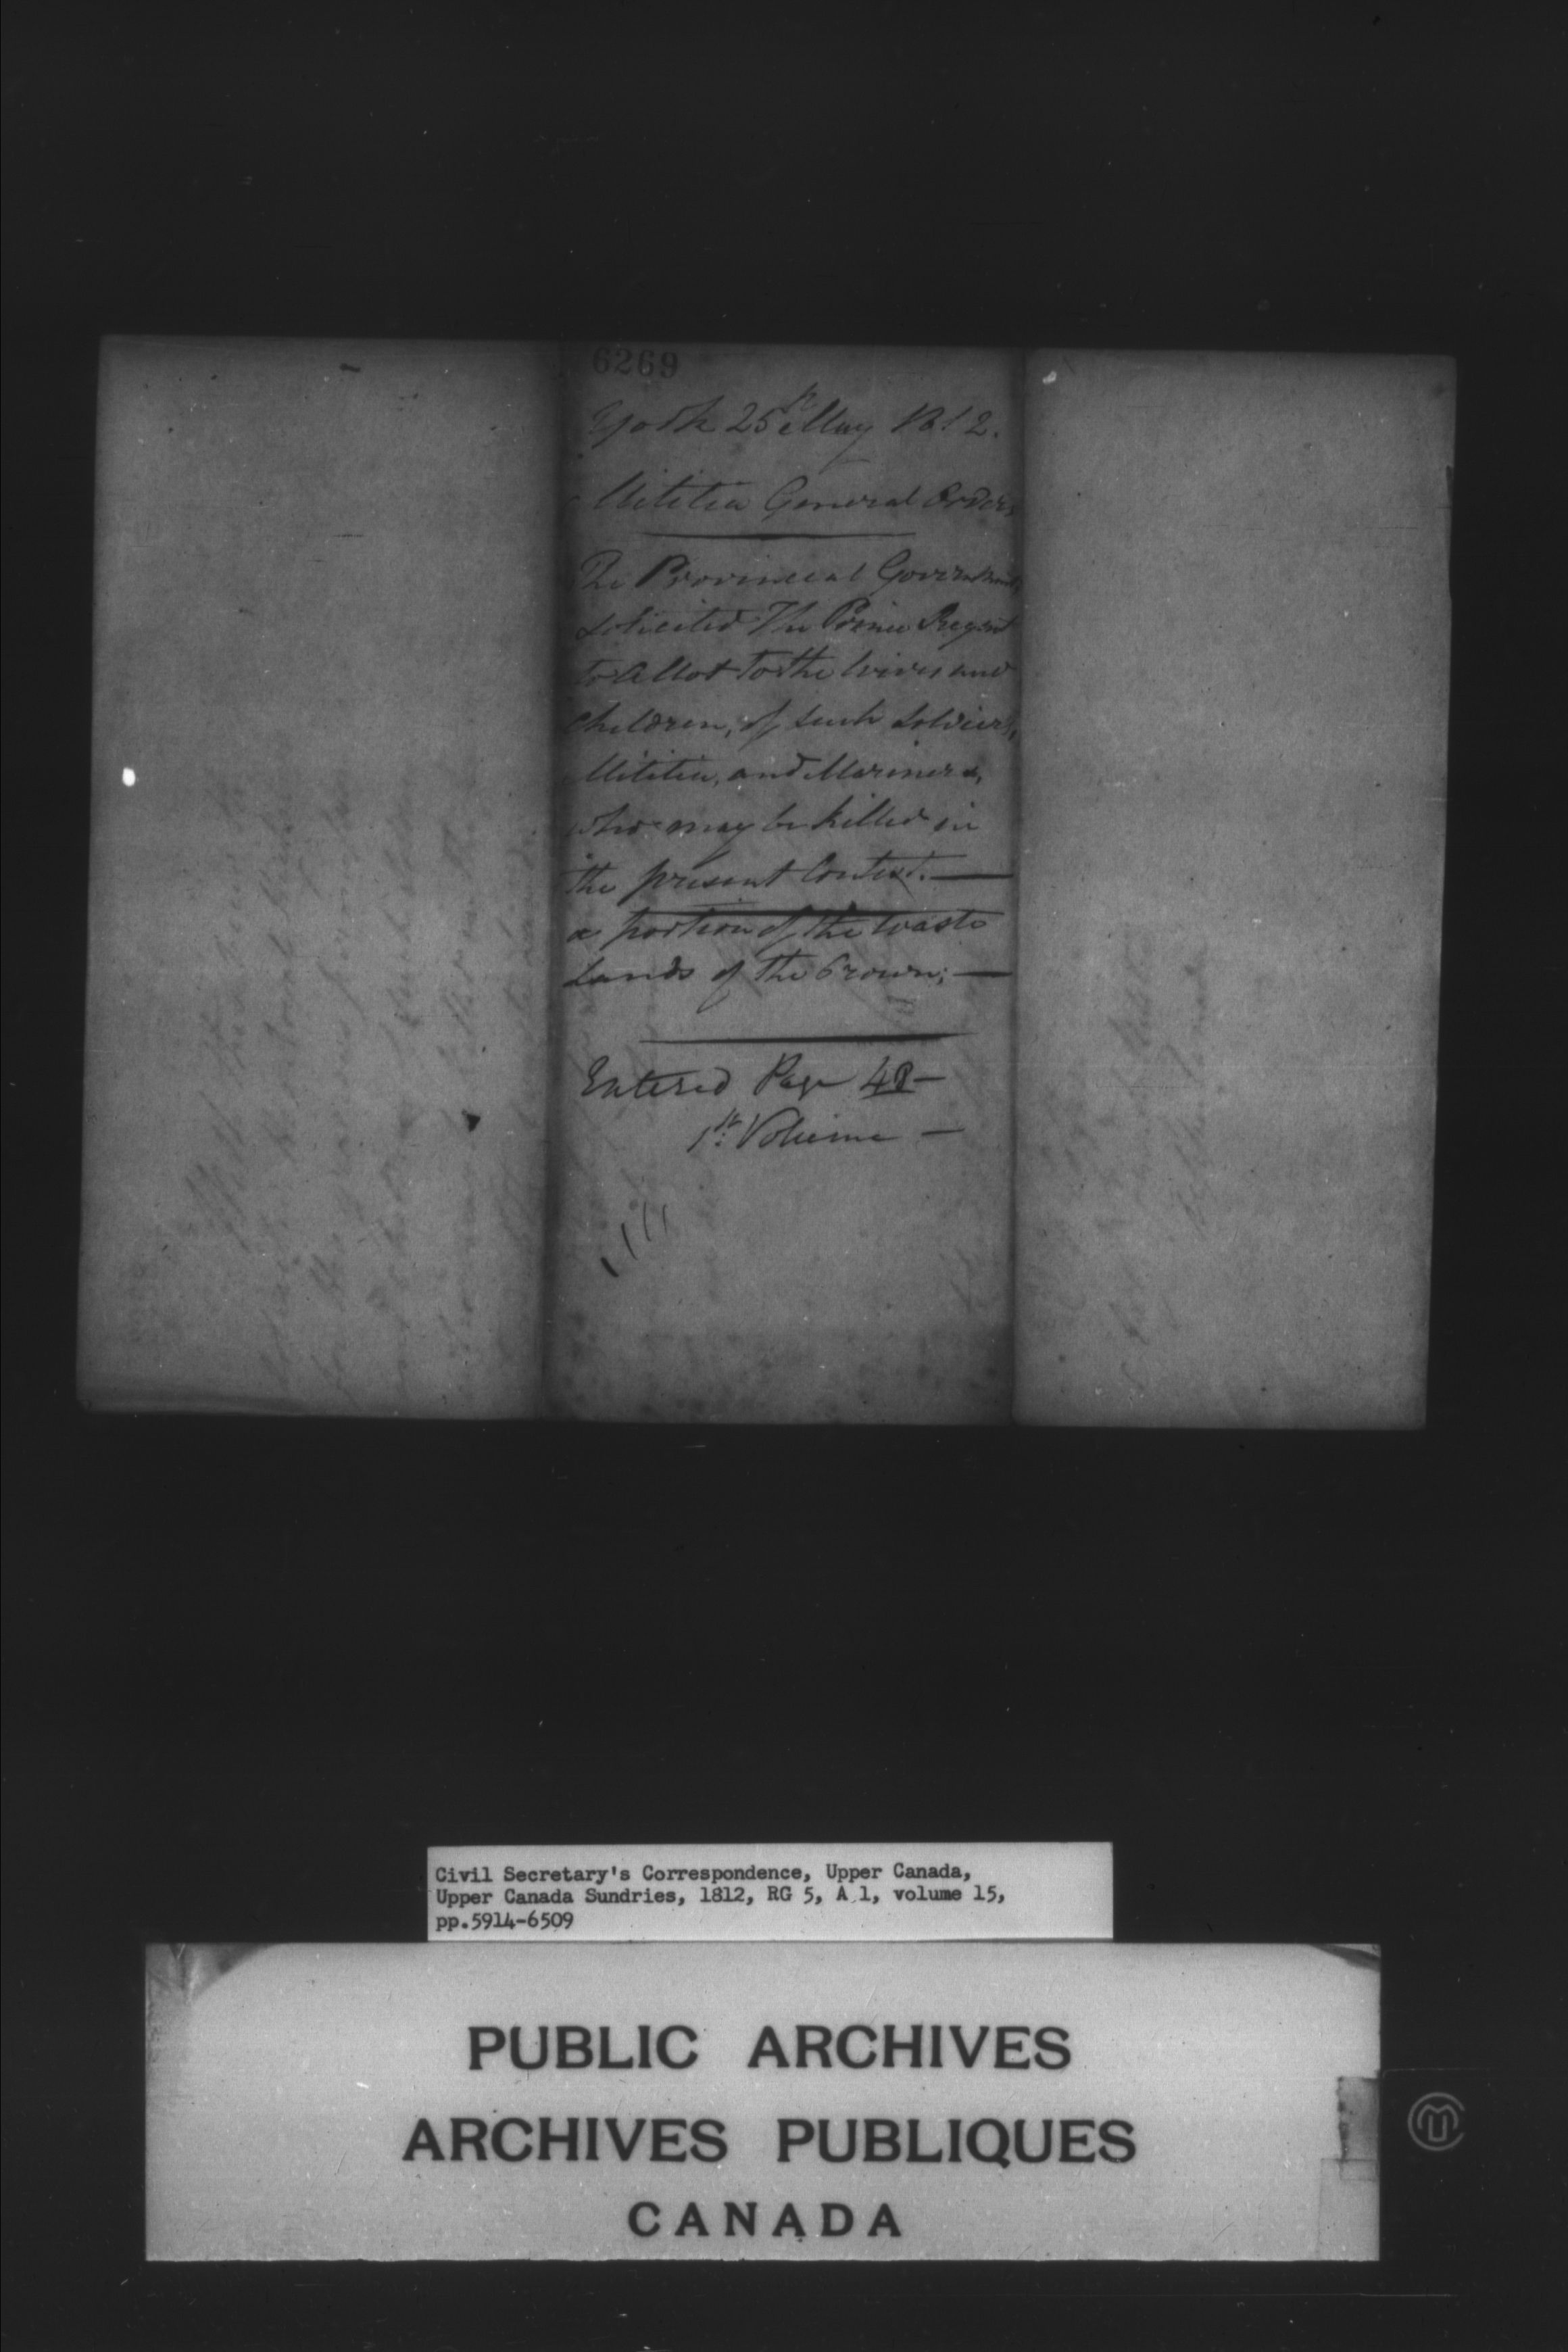 6269
York 25th May 1812.
Militia General Orders
The Provincial Government
Solicited The Prince Regent
to Allot to the Wives and
Children, of such Soldiers,
Militia, and Mariners,
who may be killed in
the present Contest. —
a portion of the Waste
Lands of the Crown; —
Entered Page 48 —
1st: Volume —
Civil Secretary's Correspondence, Upper Canada,
Upper Canada Sundries, 1812, RG 5, A 1, volume 15,
pp.5914-6509
PUBLIC ARCHIVES
ARCHIVES PUBLIQUES
CANADA